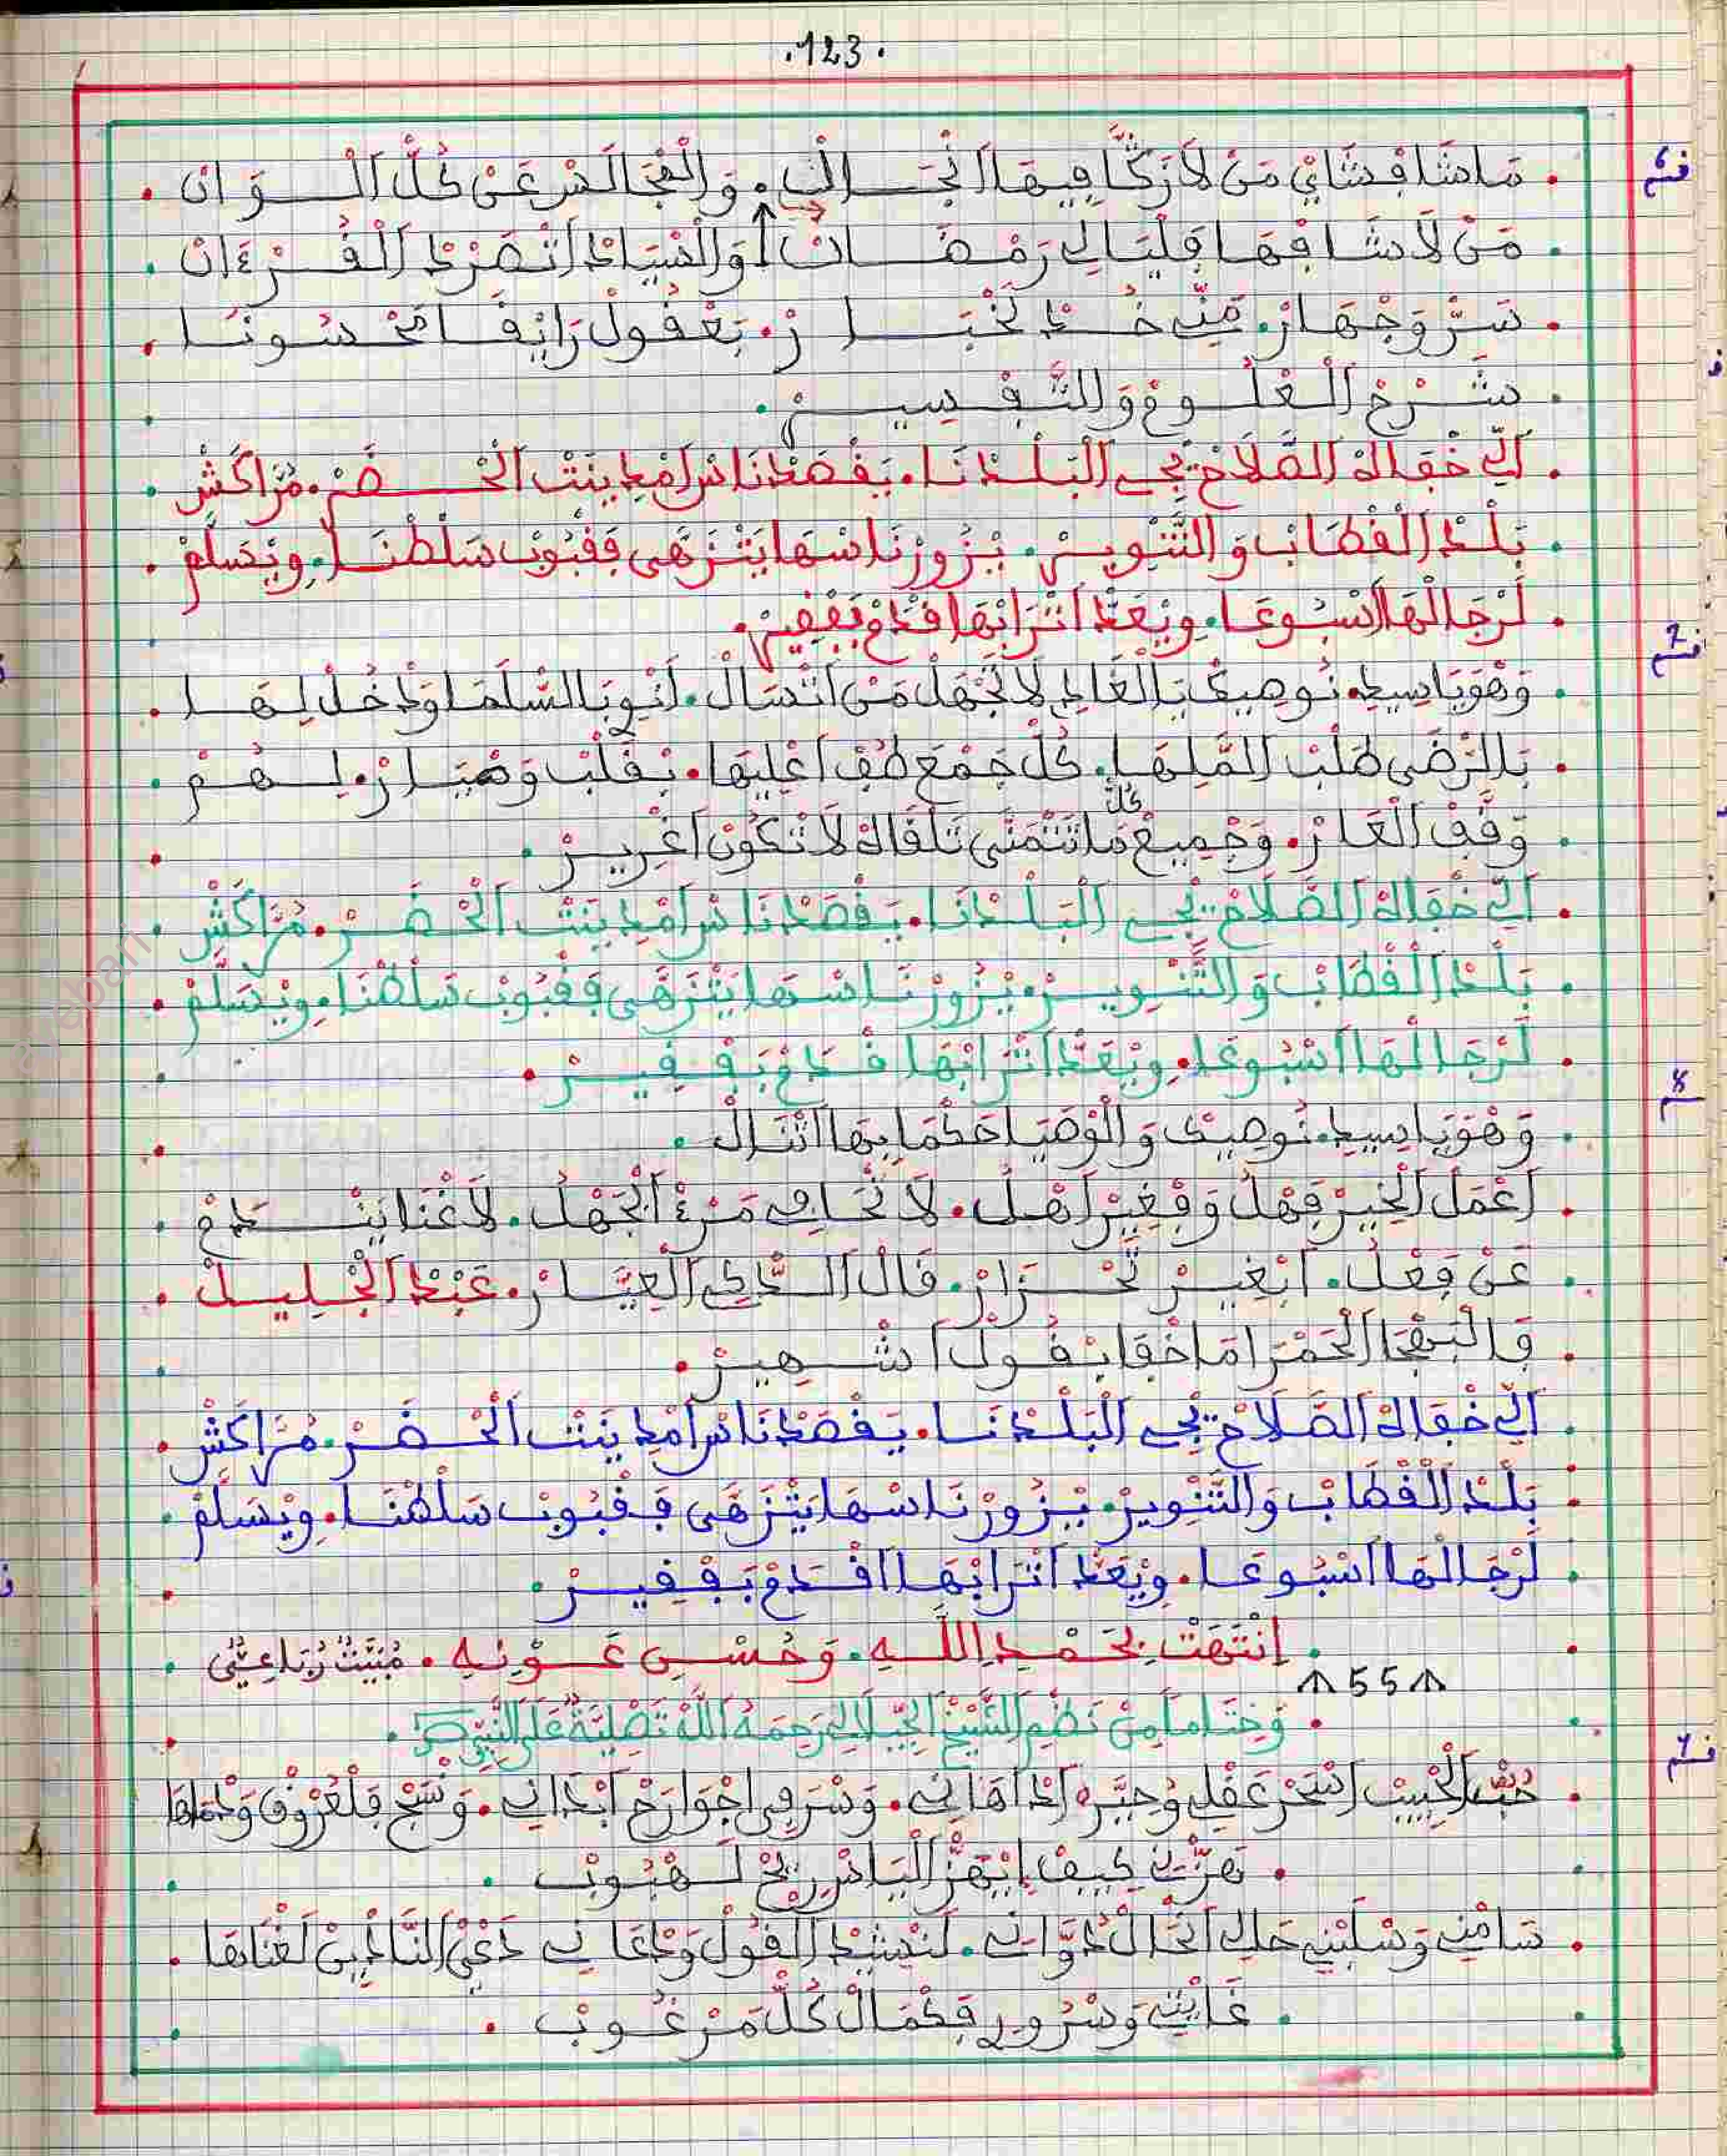 .123.
مَاشَا فْشَايْ مَنْ لَا زَكَّا فِيهَا اَنْجَالْ. وَالْمْجَالَسْ عَنْ كُلّْ اَلْوَانْ
مَنْ لَا شَافْهَا فْلِيَالِي رَمْضَانْ. وَالسْيَادْ اَتْصَرَّدْ اَلْقُرْءَانْ
سَرّْ وَجْهَارْ. مَنِّي خُدْ لَخْبَارْ. بَعْقُولْ رَايْقَا مَحْسُونَا
شَرْحْ اَلْعْلُومْ وَالتَّفْسِيرْ.
اَلِّي خْفَاكْ الصَّلَاحْ يْجِي اَلْبَلْدْنَا. يَقْصَدْ نَاسْ اَمْدِينَتْ اَلْحْضَرْ. مُرَّاكَشْ
بَلْدْ اَلْقْطَابْ وَالتَّنْوِيرْ. يْزُورْ نَاسْهَا يَتْنَزَّهَى فَقْبُوبْ سَلْطْنَا. وِيْسَلَّمْ
لَرْجَالْهَا اَسْبُوعَا. وِيْعَدّْ اَتْرَابْهَا قْدَمْ بَقْفِيرْ.
وَهْوَ يَا سِيدِي نُوصِيكْ يَالْغَادِي لَا تَجْهَلْ مَنْ اَتْسَالْ. اَنْوِي بَالسَّلَمَا وَدْخُلْ لِهَا
بَالرّْضَى طَلْبْ اَلمَّلِهَا. كُلّْ جَمْعَ طُفْ اَعْلِيهَا. بْقَلْبْ وَضْيَارْ. لِهُمْ
وَقَّفْ اَلْعَارْ. وَجْمِيعْ كُلّْ مَا تَتْمَنَّى تَلْقَاكْ لَا تْكُونْ اَغْرِيرْ
اَلِّي خْفَاكْ الصَّلَاحْ يْجِي اَلْبَلْدْنَا. يَقْصَدْ نَاسْ اَمْدِينَتْ اَلْحْضَرْ. مُرَّاكَشْ
بَلْدْ اَلْقْطَابْ وَالتَّنْوِيرْ. يْزُورْ نَاسْهَا يَتْنَزَّهَى فَقْبُوبْ سَلْطْنَا. وِيْسَلَّمْ
لَرْجَالْهَا اَسْبُوعَا. وِيْعَدّْ اَتْرَابْهَا قْدَمْ بَقْفِيرْ.
وَهْوَ يَا سِيدِي نُوصِيكْ وَالْوْصَيَا حَكْمَا بِهَا اَتْنَالْ.
اَعْمَلْ اَلْخِيرْ فَهْلُ وَفْغِيرْ اَهْلُ. لَا تْحَافِي مَرْءْ اَلْجَهْلُ. لَا غْنَا يَنْدَمْ
عَنْ فِعْلُ. اَبْغِيرْ تَّحْزَارْ. قَالْ اَلدَّاكِي اَلْعِيَّارْ. عَبْدْ اَلْجْلِيلْ
فَالْبَهْجَا اَلْحَمْرَا مَاخْفَا يْقُولْ اَشْهِيرْ.
اَلِّي خْفَاكْ الصَّلَاحْ يْجِي اَلْبَلْدْنَا. يَقْصَدْ نَاسْ اَمْدِينَتْ اَلْحْضَرْ. مُرَّاكَشْ
بَلْدْ اَلْقْطَابْ وَالتَّنْوِيرْ. يْزُورْ نَاسْهَا يَتْنَزَّهَى فَقْبُوبْ سَلْطْنَا. وِيْسَلَّمْ
لَرْجَالْهَا اَسْبُوعَا. وِيْعَدّْ اَتْرَابْهَا اقْدَمْ بَقْفِيرْ.
اِنْتَهَتْ بِحَمْدِ اللَّهِ. وَحُسْنِ عَوْنِهِ. مُبَيَّتْ رُبَاعِيٌّ
55
وَخِتَاماً مِنْ نَظْمِ الشَّيْخِ الجِيلَالِي رَحِمَهُ اللَّهُ تَصْلِيَةٌ عَلَى النَّبِيِّ ص
حُبّْ اَلْحْبِيبْ اَسْحَرْ عَقْلِي وُحِيَّرْ اِدْاهَانِي. وَسْرَى فِي اجْوَارَحْ اَبْدَانِي. وَنْسَجْ فَلْعْرُوقْ وَدْمَاهَا
تَهَزّْنِي كِيفْ اِيْهَزّْ اَلْيَاسْ رِيحْ لَهْبُوبْ.
سَامْنِي وَسْلَبْنِي حَالِي اَلْحَالْ دْوَّانِي. لَنْشِيدْ اَلْقُولْ وَدْعَانِي دَعْيْ النَّادْبِينْ لَغْنَاهَا
غَايْتِي وَسْرُورِي فَكْمَالْ كُلّْ مَرْغُوبْ